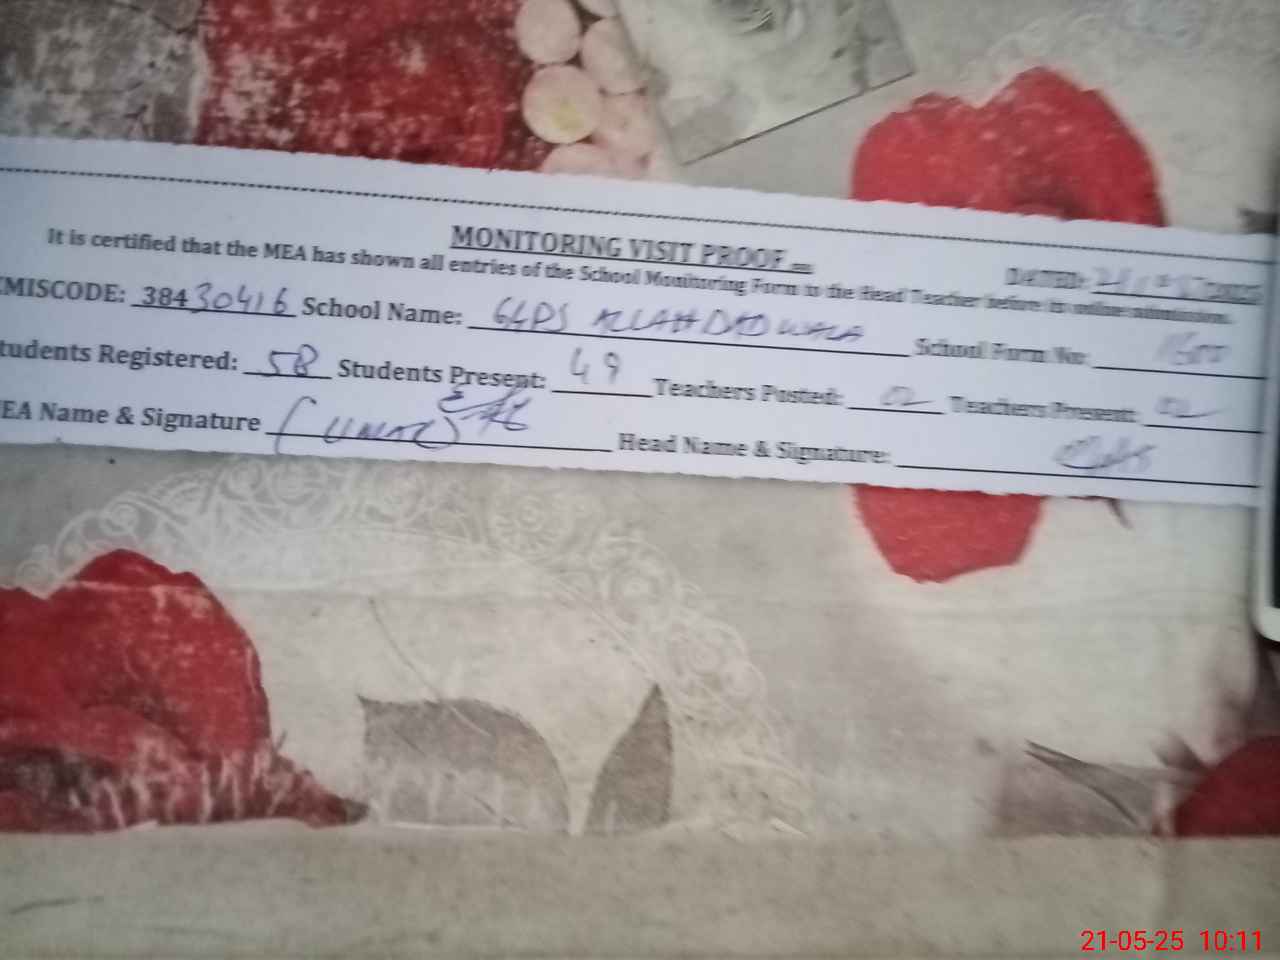 MONITORING VISIT PROOF
DATED:
It is certified that the MEA has shown all entries of the School Monitoring Form to the Head Teacher before its online submission.
EMISCODE: 38430416 School Name: GGPS ALLAH DAD WALA School Form No:
Students Registered: 58 Students Present: 49 Teachers Posted: 02 Teachers Present: 02
MEA Name & Signature Head Name & Signature:
21-05-25 10:11